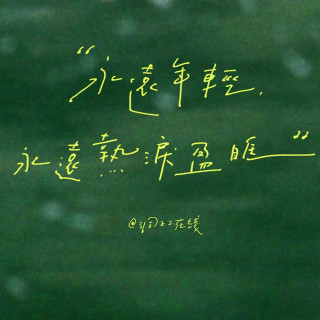 “永遠年輕，
永遠熱淚盈眶”